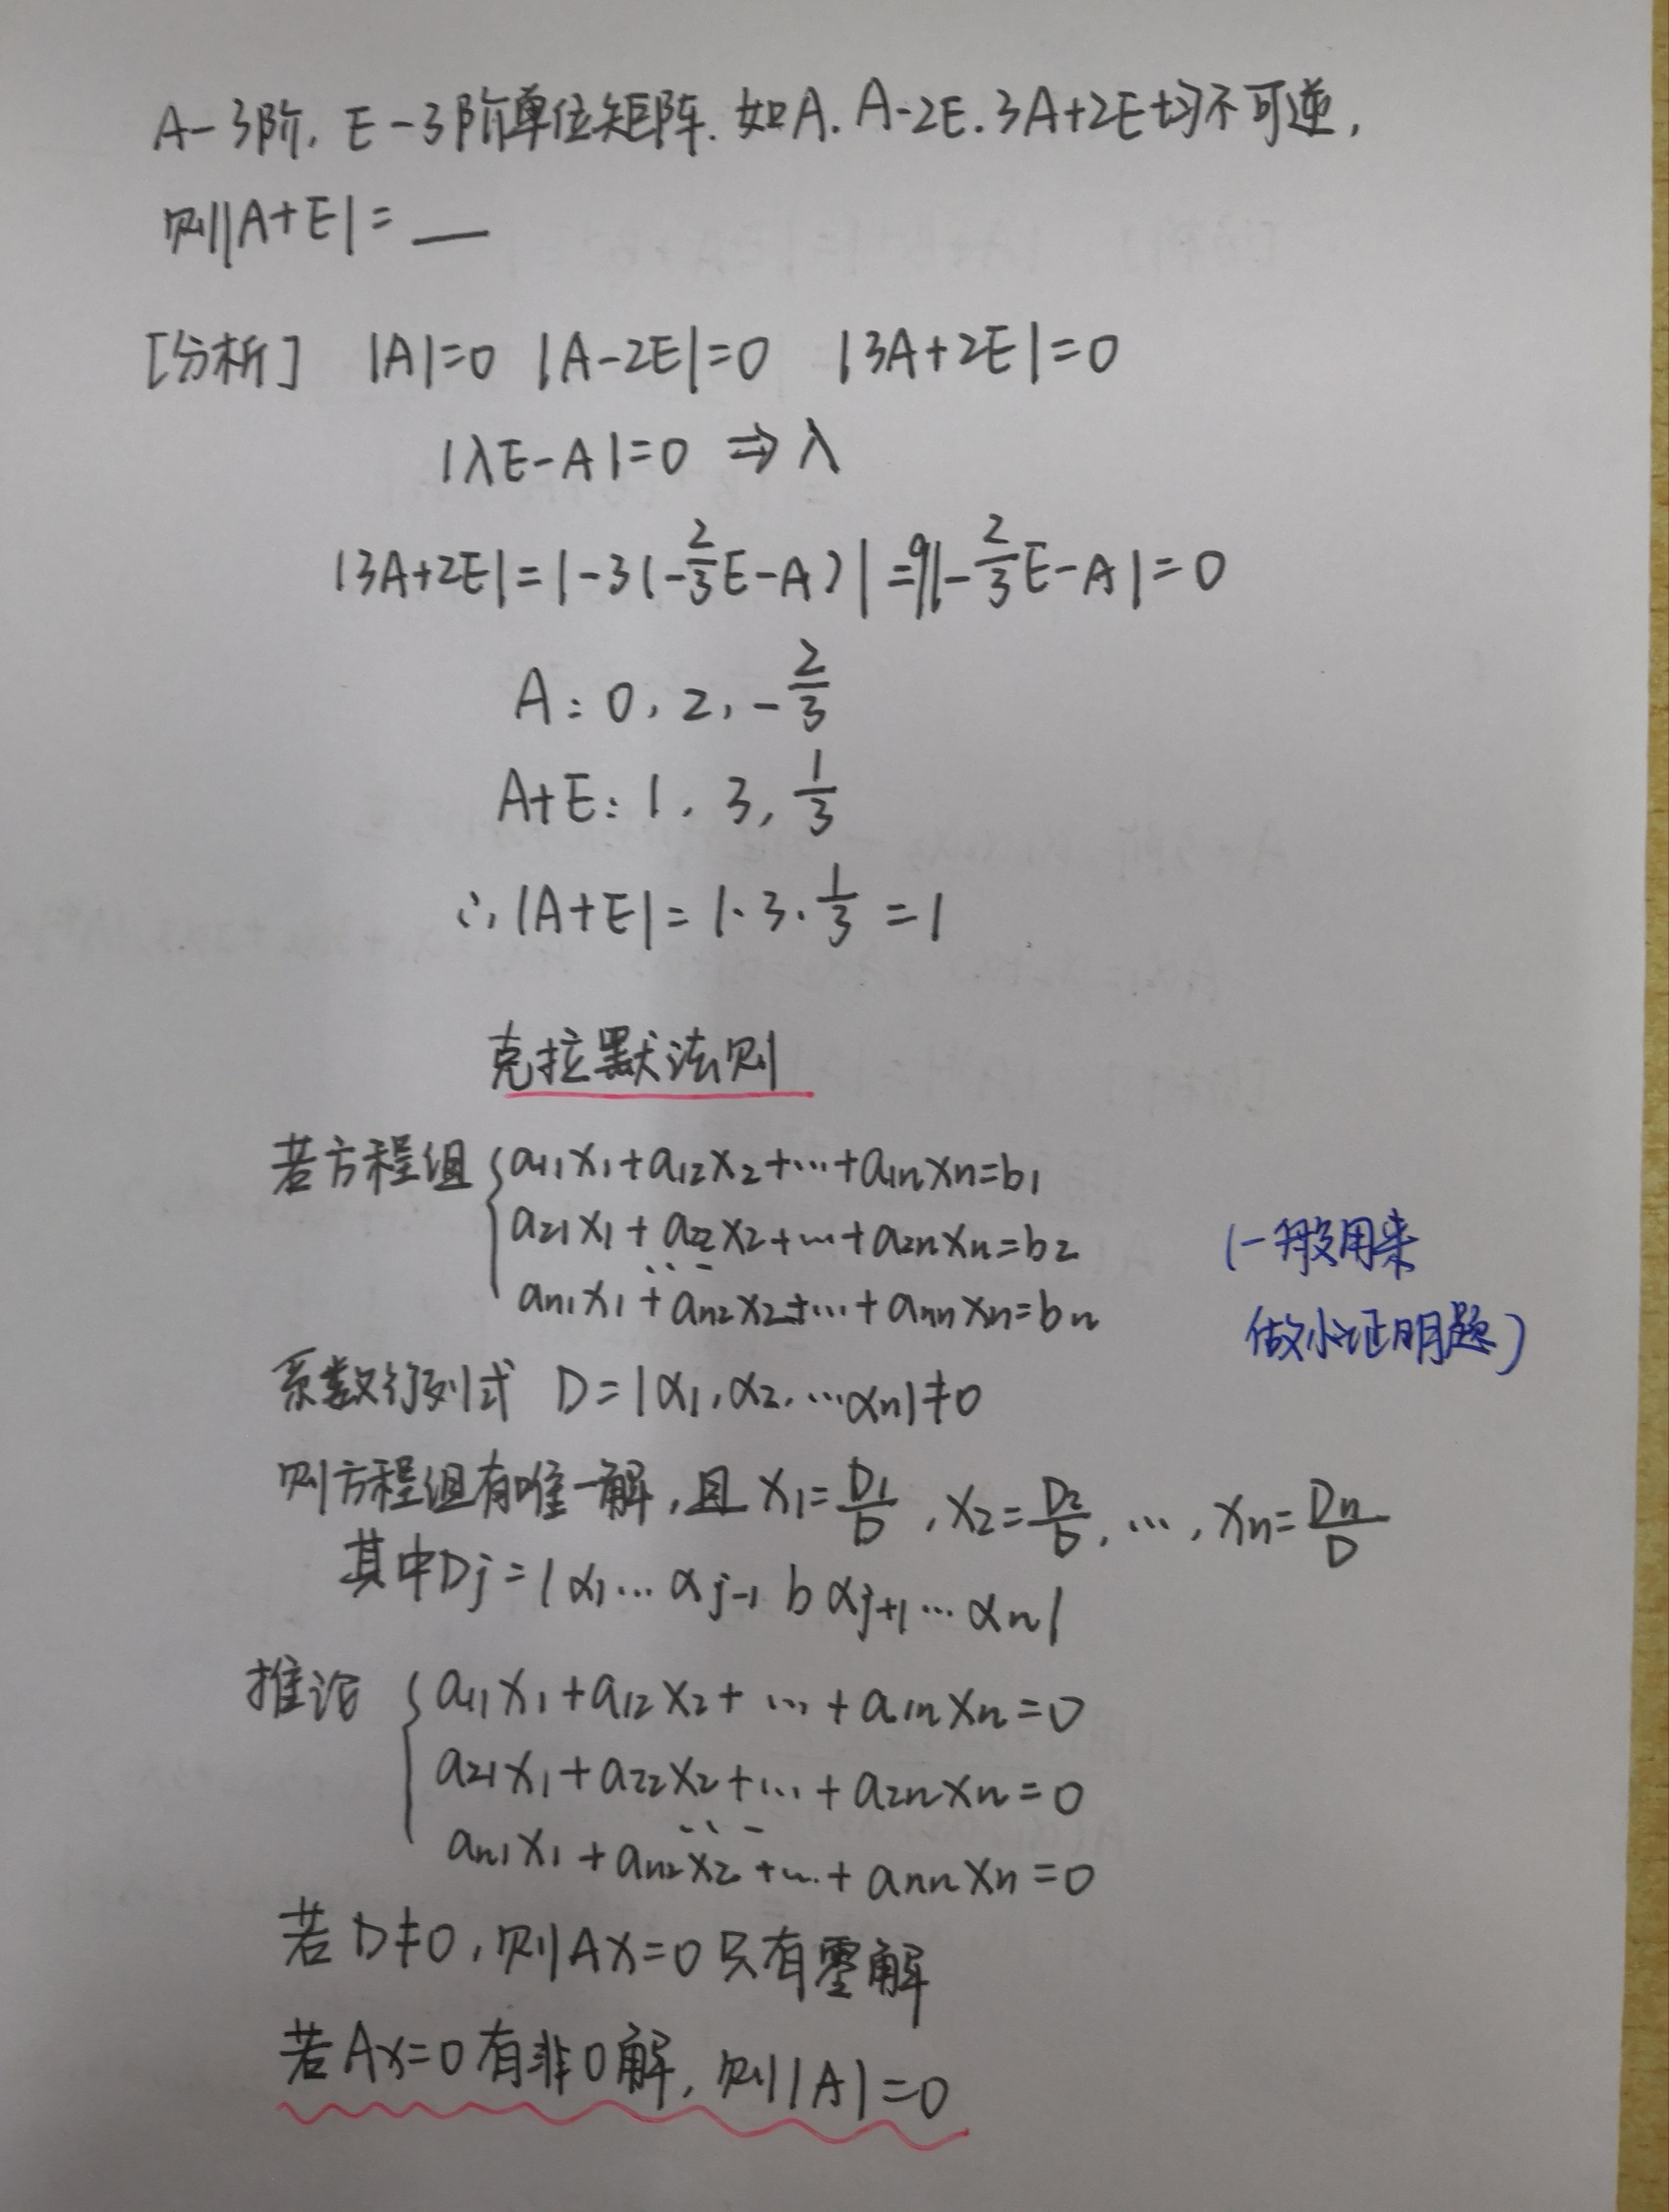 A-3阶. E-3阶单位矩阵. 如A. A-2E. 3A+2E均不可逆,
则|A+E|= __
[分析] |A|=0 |A-2E|=0 |3A+2E|=0
|λE-A|=0 ⇒ λ
|3A+2E|=|-3(-2/3E-A)|=9|-2/3E-A|=0
A: 0, 2, -2/3
A+E: 1, 3, 1/3
∴|A+E|=1·3·1/3=1
克拉默法则
若方程组 { a₁₁x₁+a₁₂x₂+…+a₁ₙxₙ=b₁
a₂₁x₁+a₂₂x₂+…+a₂ₙxₙ=b₂
…
aₙ₁x₁+aₙ₂x₂+…+aₙₙxₙ=bₙ
(一般用来
做小证明题)
系数行列式 D=|α₁,α₂,…αₙ|≠0
则方程组有唯一解,且 x₁=D₁/D, x₂=D₂/D, …, xₙ=Dₙ/D
其中Dj=|α₁…αj-1 b αj+1…αₙ|
推论 { a₁₁x₁+a₁₂x₂+…+a₁ₙxₙ=0
a₂₁x₁+a₂₂x₂+…+a₂ₙxₙ=0
…
aₙ₁x₁+aₙ₂x₂+…+aₙₙxₙ=0
若D≠0,则Ax=0只有零解
若Ax=0有非0解,则|A|=0